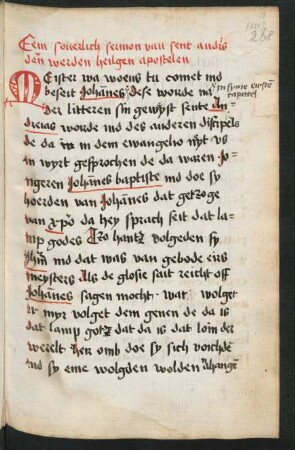 268
Eein soiterlich sermon van sent andris
den werden heilgen apostelen
Meister wa woens tu comet md
beseit Johānes dese worde na
der litteren sin gewyst sente An
dreias worde md des anderen discipels
de da in dem ewangeho nyt vs
in wyrt gesprochen de da waren Jo
ngeren Johānes baptiste md doe sy
hoerden van Johānes dat getzoge
van xpo da hey sprach seit dat la-
mp godes Tzo hantz volgeden sy
Jhm md dat was van gebode eirs
meysters Als de glosie sait reicht off
Johānes sagen mocht wat wolget
ir myr volget dem genen de da is
dat lamp gotz dat da is dat loin der
werelt her omb doe sy sich vorchde
md sy eme wolgden wolden